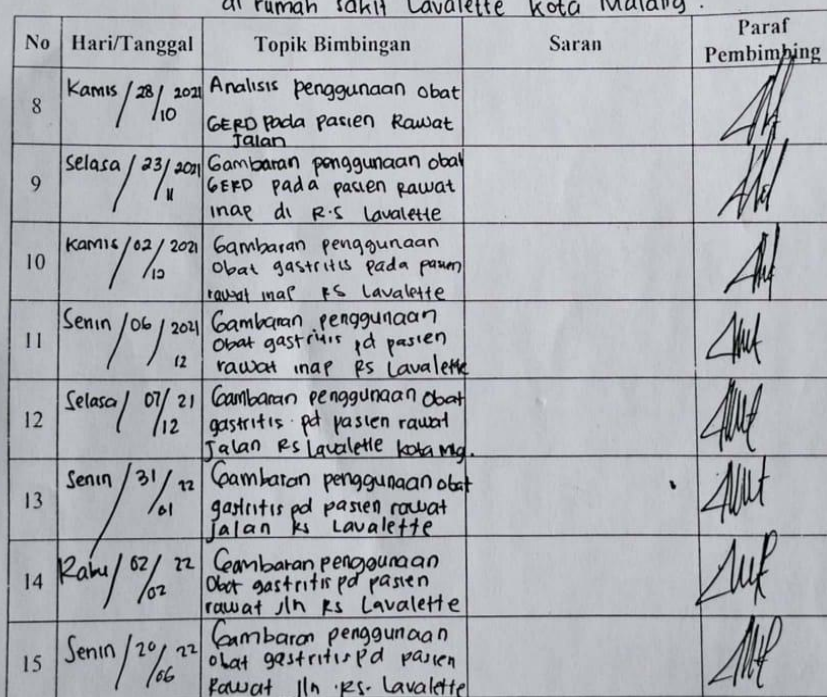 di rumah sakit Lavalette Kota Malang.
No Hari/Tanggal Topik Bimbingan Saran Paraf Pembimbing
8 Kamis / 28 / 10 2021 Analisis penggunaan obat
GERD pada pasien Rawat
Jalan
9 Selasa / 23 / 11 2021 Gambaran penggunaan obat
GERD pada pasien rawat
inap di R.S Lavalette
10 Kamis / 02 / 12 2021 Gambaran penggunaan
Obat gastritis pada pasien
rawat inap RS Lavalette
11 Senin / 06 / 12 2021 Gambaran penggunaan
Obat gastritis pd pasien
rawat inap RS Lavalette
12 Selasa / 07 / 12 21 Gambaran penggunaan obat
gastritis pd pasien rawat
Jalan RS Lavalette kota mlg.
13 Senin / 31 / 01 22 Gambaran penggunaan obat
gastritis pd pasien rawat
jalan RS Lavalette
14 Rabu / 02 / 02 22 Gambaran penggunaan
Obat gastritis pd pasien
rawat jln RS Lavalette
15 Senin / 20 / 06 22 Gambaran penggunaan
obat gastritis pd pasien
Rawat jln RS. Lavalette